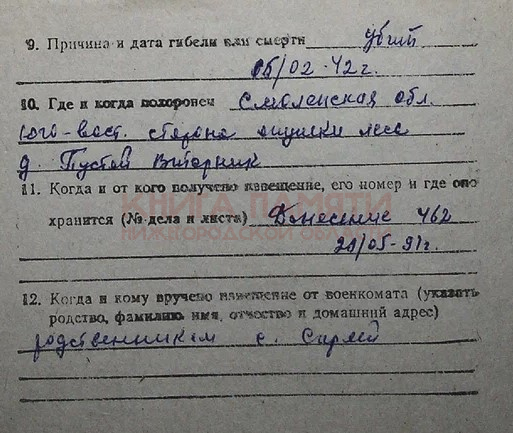 9. Причина и дата гибели или смерти убит
05/02-42г.
10. Где и когда похоронен Смоленская обл.
юго-вост. сторона опушки леса
д. Пустой Вторник
11. Когда и от кого получено извещение, его номер и где оно
хранится (№ дела и листа) Донесение 462
КНИГА ПАМЯТИ
НИЖЕГОРОДСКОЙ ОБЛАСТИ
20/05-91г.
12. Когда и кому вручено извещение от военкомата (указать
родство, фамилию имя, отчество и домашний адрес)
родственникам с.